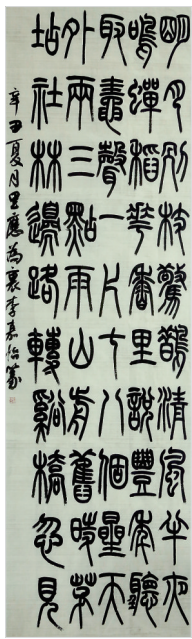 明月別枝驚鵲清風半夜
鳴蟬稻華香里說豐年聽
取鼃聲一片七八個星天
外兩三點雨山前舊時茅
坫社林邊路轉谿橋忽見
辛丑夏月里應為裏李嘉怡篆